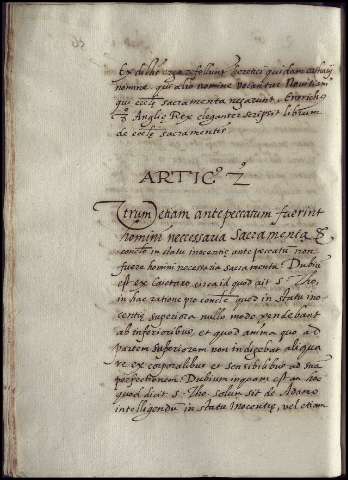 nomine, qui alio nomine vocantur
qui eccle sacramenta negarunt. Enrrich9
8º Anglię Rex eleganter scripsit librum
de eccle sacramentis
ARTICº 2º
Utrum etiam ante peccatum fuerint
homini necessaria sacramenta
conclo in statu inocentię ante peccatū non
fuere homini necessaria sacramenta. Dubiū
est ex Caetano circa id quod ait S. Tho.
in hac ratione pro concle quod in statu ino
centię superiora nullo modo pendebant
ab inferioribus, et quod anima quo ad
partem superiorem non indigebat aliqua
re ex corporalibus et sensibilibus ad sua
perfectionem. Dubium inquam est an hoc
quod dicit S. Tho. solum sit de Adamo
intelligendū in statu inocentię, vel etiam